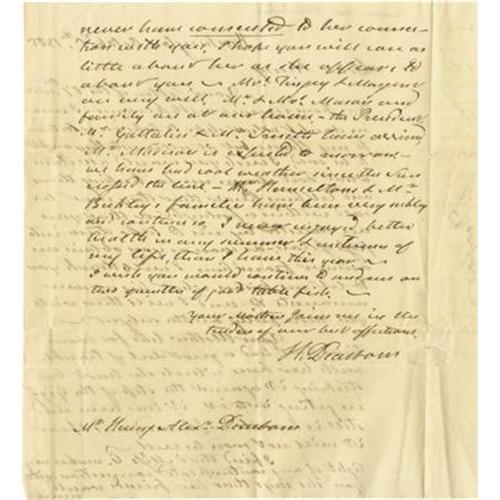 never have consented to her connec-
tion with you, I hope you will care as
little about her as she appears to
about you — Mrs. Tingey & Margaret
are very well, Mr. & Mrs. Mason and
family are at our house — the President,
Mr. Gallatin & Mr. Smith have arrived
Mr. Madison is expected tomorrow —
we have had cool weather since the sun
crossed the line — Mr. Hamiltons & Mr.
Beckleys families have been very sickly
and continue so, I never enjoyed better
health in any summer & autumn of
my life, than I have this year —
I wish you would continue to send us on
two quintles of good table fish. —
your Mother Joins me in the
tender of our best affections.
H. Dearborn
Mr. Henry Alexr. Dearborn